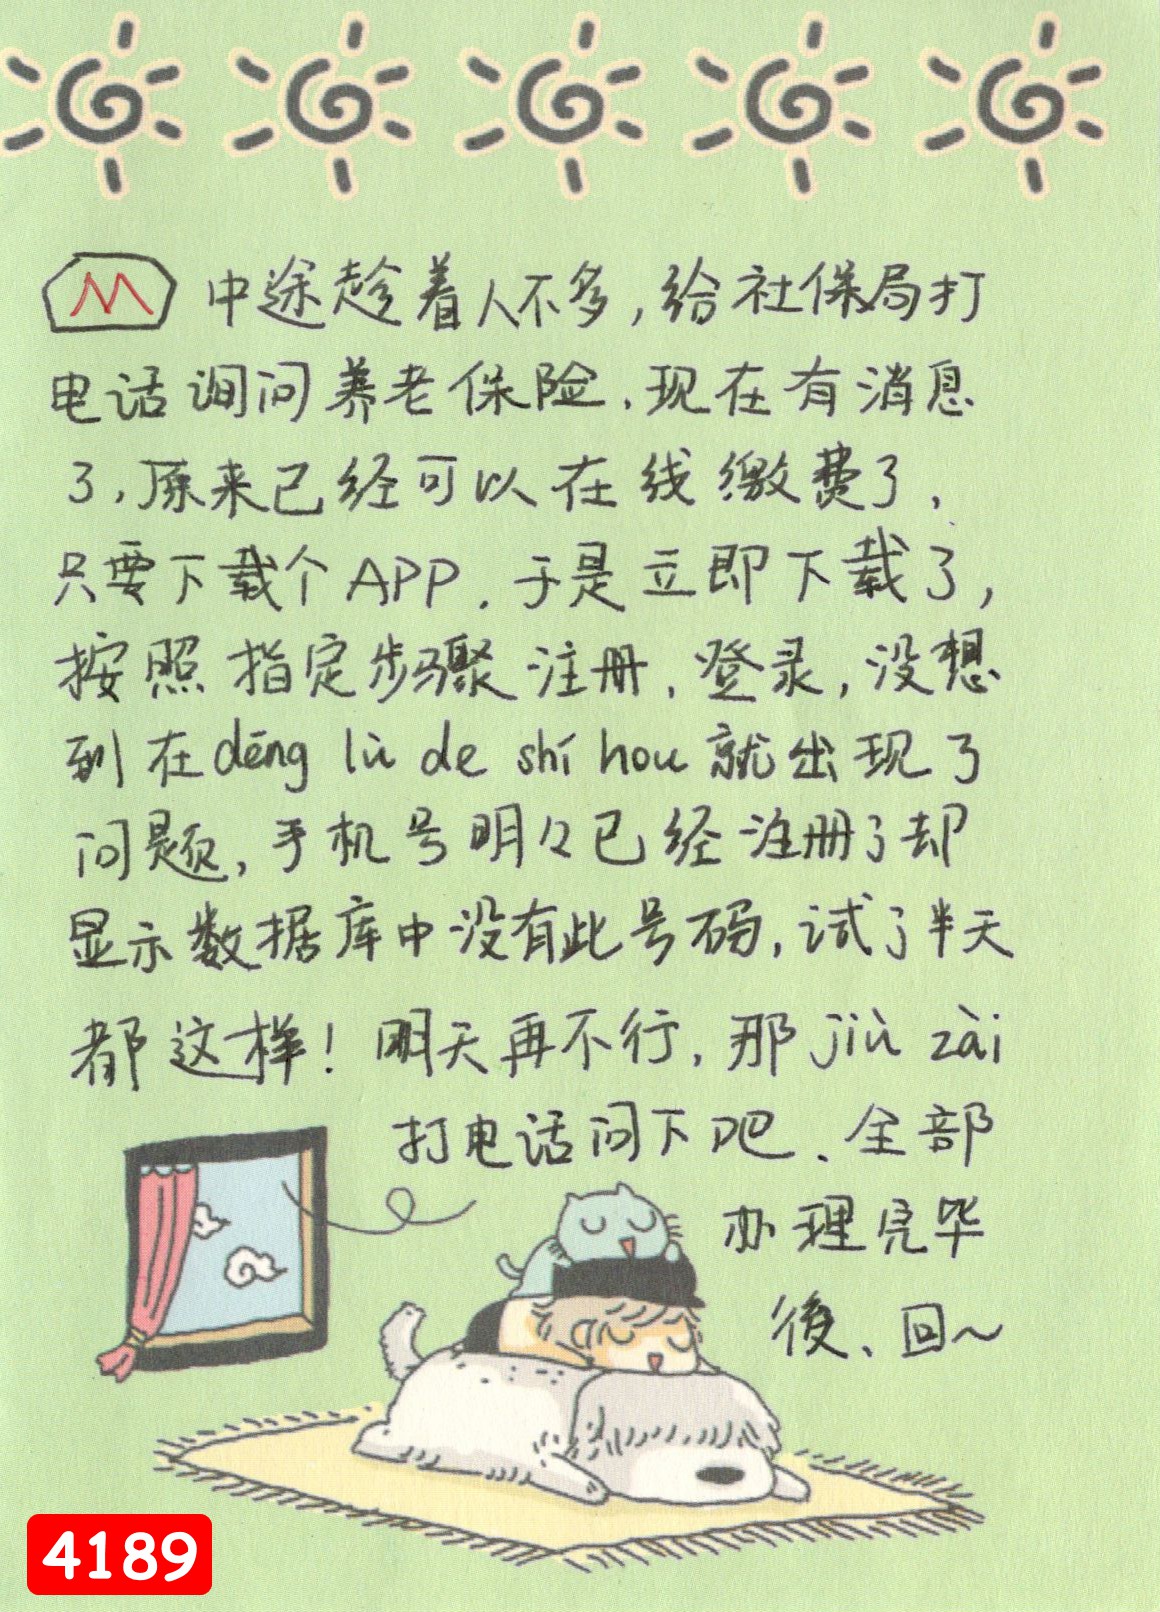 M 中途趁着人不多,给社保局打
电话询问养老保险.现在有消息
了,原来已经可以在线缴费了,
只要下载个APP.于是立即下载了,
按照指定步骤注册,登录,没想
到在dēng lù de shí hou就出现了
问题,手机号明々已经注册了却
显示数据库中没有此号码,试了半天
都这样!明天再不行,那jiù zài
打电话问下吧、全部
办理完毕
後、回~
4189